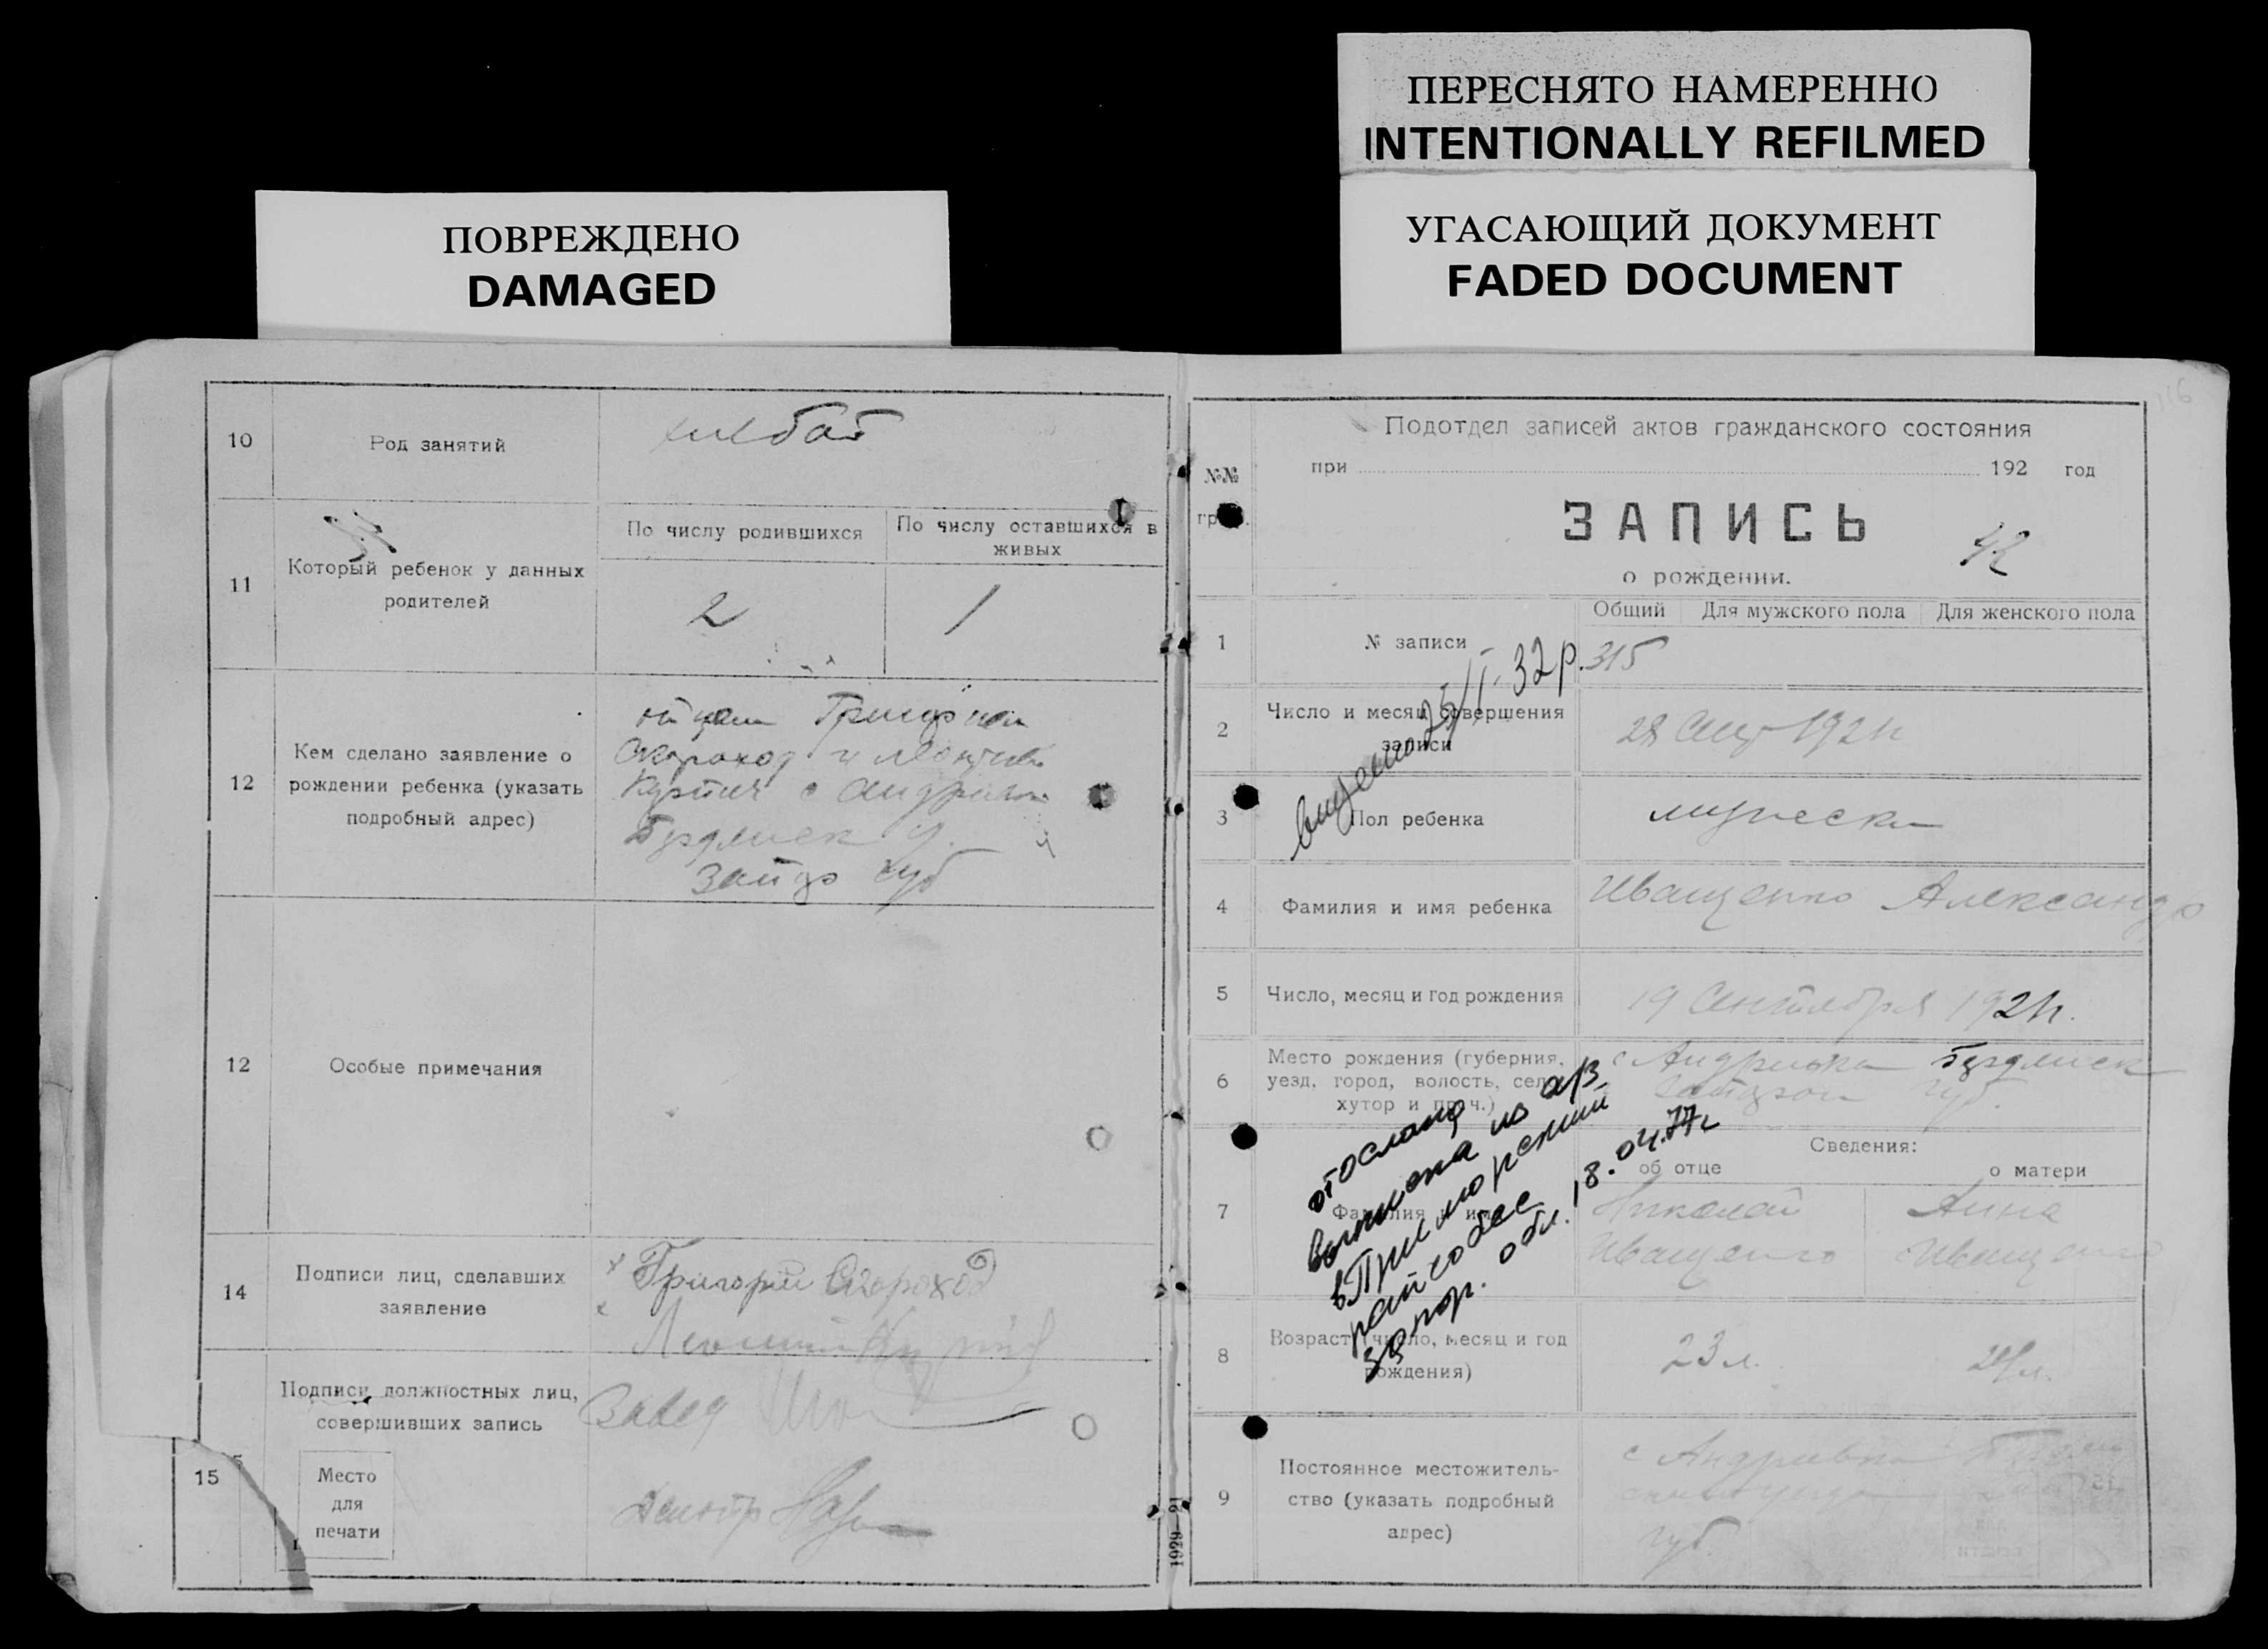 ПЕРЕСНЯТО НАМЕРЕННО
INTENTIONALLY REFILMED
УГАСАЮЩИЙ ДОКУМЕНТ
FADED DOCUMENT
ПОВРЕЖДЕНО
DAMAGED
10
Род занятий
хлебоб
11
Который ребенок у данных
родителей
По числу родившихся
По числу оставшихся в
живых
2
1
12
Кем сделано заявление о
рождении ребенка (указать
подробный адрес)
отцом Григорием
Скороход и Леонтий
с Андривка
Бердянск у.
Запор губ
12
Особые примечания
14
Подписи лиц, сделавших
заявление
Григорий Скороход
15
Подписи должностных лиц,
совершивших запись
Завед
Место
для
печати
1929—21
116
Подотдел записей актов гражданского состояния
при 192 год
№№
гр.
ЗАПИСЬ
о рождении.
Общий
Для мужского пола
Для женского пола
1
№ записи
315
2
Число и месяц совершения
записи
28 Сент 1921
3
Пол ребенка
мужеск
4
Фамилия и имя ребенка
Иващенко Александр
5
Число, месяц и год рождения
19 Сентября 1921
6
Место рождения (губерния,
уезд, город, волость, село,
хутор и проч.)
с Андривка Бердянск
губ.
Сведения:
об отце
о матери
7
Фамилия и имя
Николай
Иващенко
Анна
Иващенко
8
Возраст (число, месяц и год
рождения)
23 л.
21 л.
9
Постоянное местожитель-
ство (указать подробный
адрес)
с Андривка
губ.
25/I-32р.
отослано
выписка из
в Приморский
райсобес
запор. обл. 18.04.77г